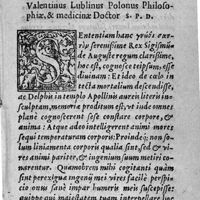 Valentinus Lublinus Polonus Philoso-
phiæ, & medicinæ Doctor S. P. D.
SEntentiam hanc
rio serenissime Rex Sigismũ-
de Auguste regum clarissime,
hoc est, cognosce teipsum, esse
diuinam: Et ideo de cœlo in
tecta mortalium descendisse,
ac Delphis in templo Apollinis aureis literis in-
sculptam, memoria proditum est, ut inde omnes
plane cognoscerent sese constare corpore, &
anima: Atque adeo intelligerent animi mores
sequi temperaturam corporis: Proinde; non so-
lum liniamenta corporis qualia sint, sed & ui-
res animi pariter, & ingenium suum metiri co-
narentur. Quamobrem mihi cogitanti quam
sint perexigua ingenij mei uires facile perspi-
cio onus sanè impar humeris meis suscepisse:
quippe qui maiestatem tuam interpellare hoc